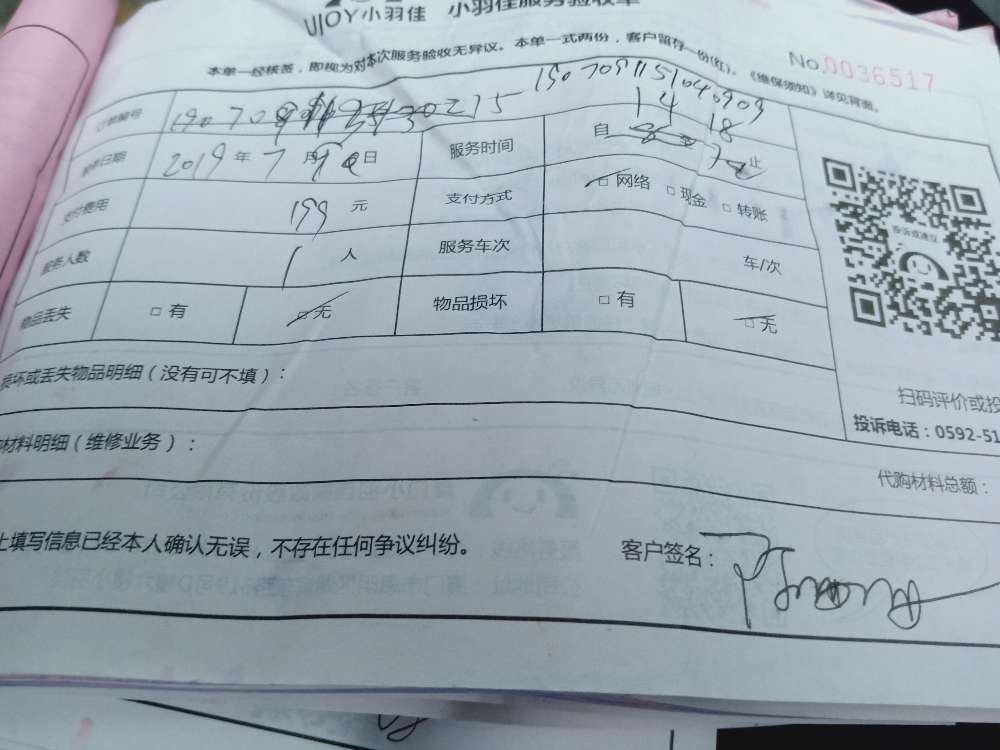 UJOY小羽佳 小羽佳服务验收单
本单一经核签，即视为对本次服务验收无异议。本单一式两份，客户留存一份(红)。《维保须知》详见背面。
No.0036517
订单编号 1907091151040909
服务日期 2019年7月 日 服务时间 自 14 至 18 止
支付费用 199 元 支付方式 □ 网络 □ 现金 □ 转账
服务人数 1 人 服务车次 车/次
物品丢失 □ 有 □ 无 物品损坏 □ 有 □ 无
投诉或建议
损坏或丢失物品明细（没有可不填）：
扫码评价或投
投诉电话：0592-51
材料明细（维修业务）：
代购材料总额：
上填写信息已经本人确认无误，不存在任何争议纠纷。
客户签名：